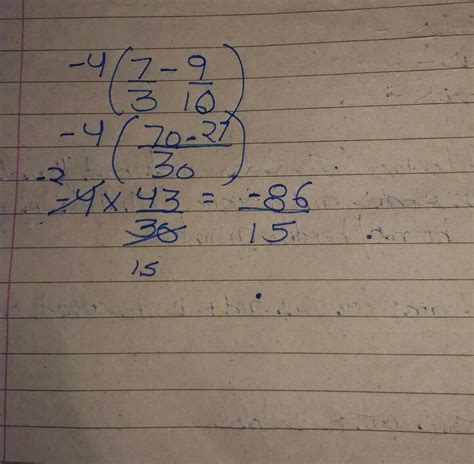 -4(7/3 - 9/10)
-4(70-27/30)
-2
-4 × 43/30 = -86/15
15